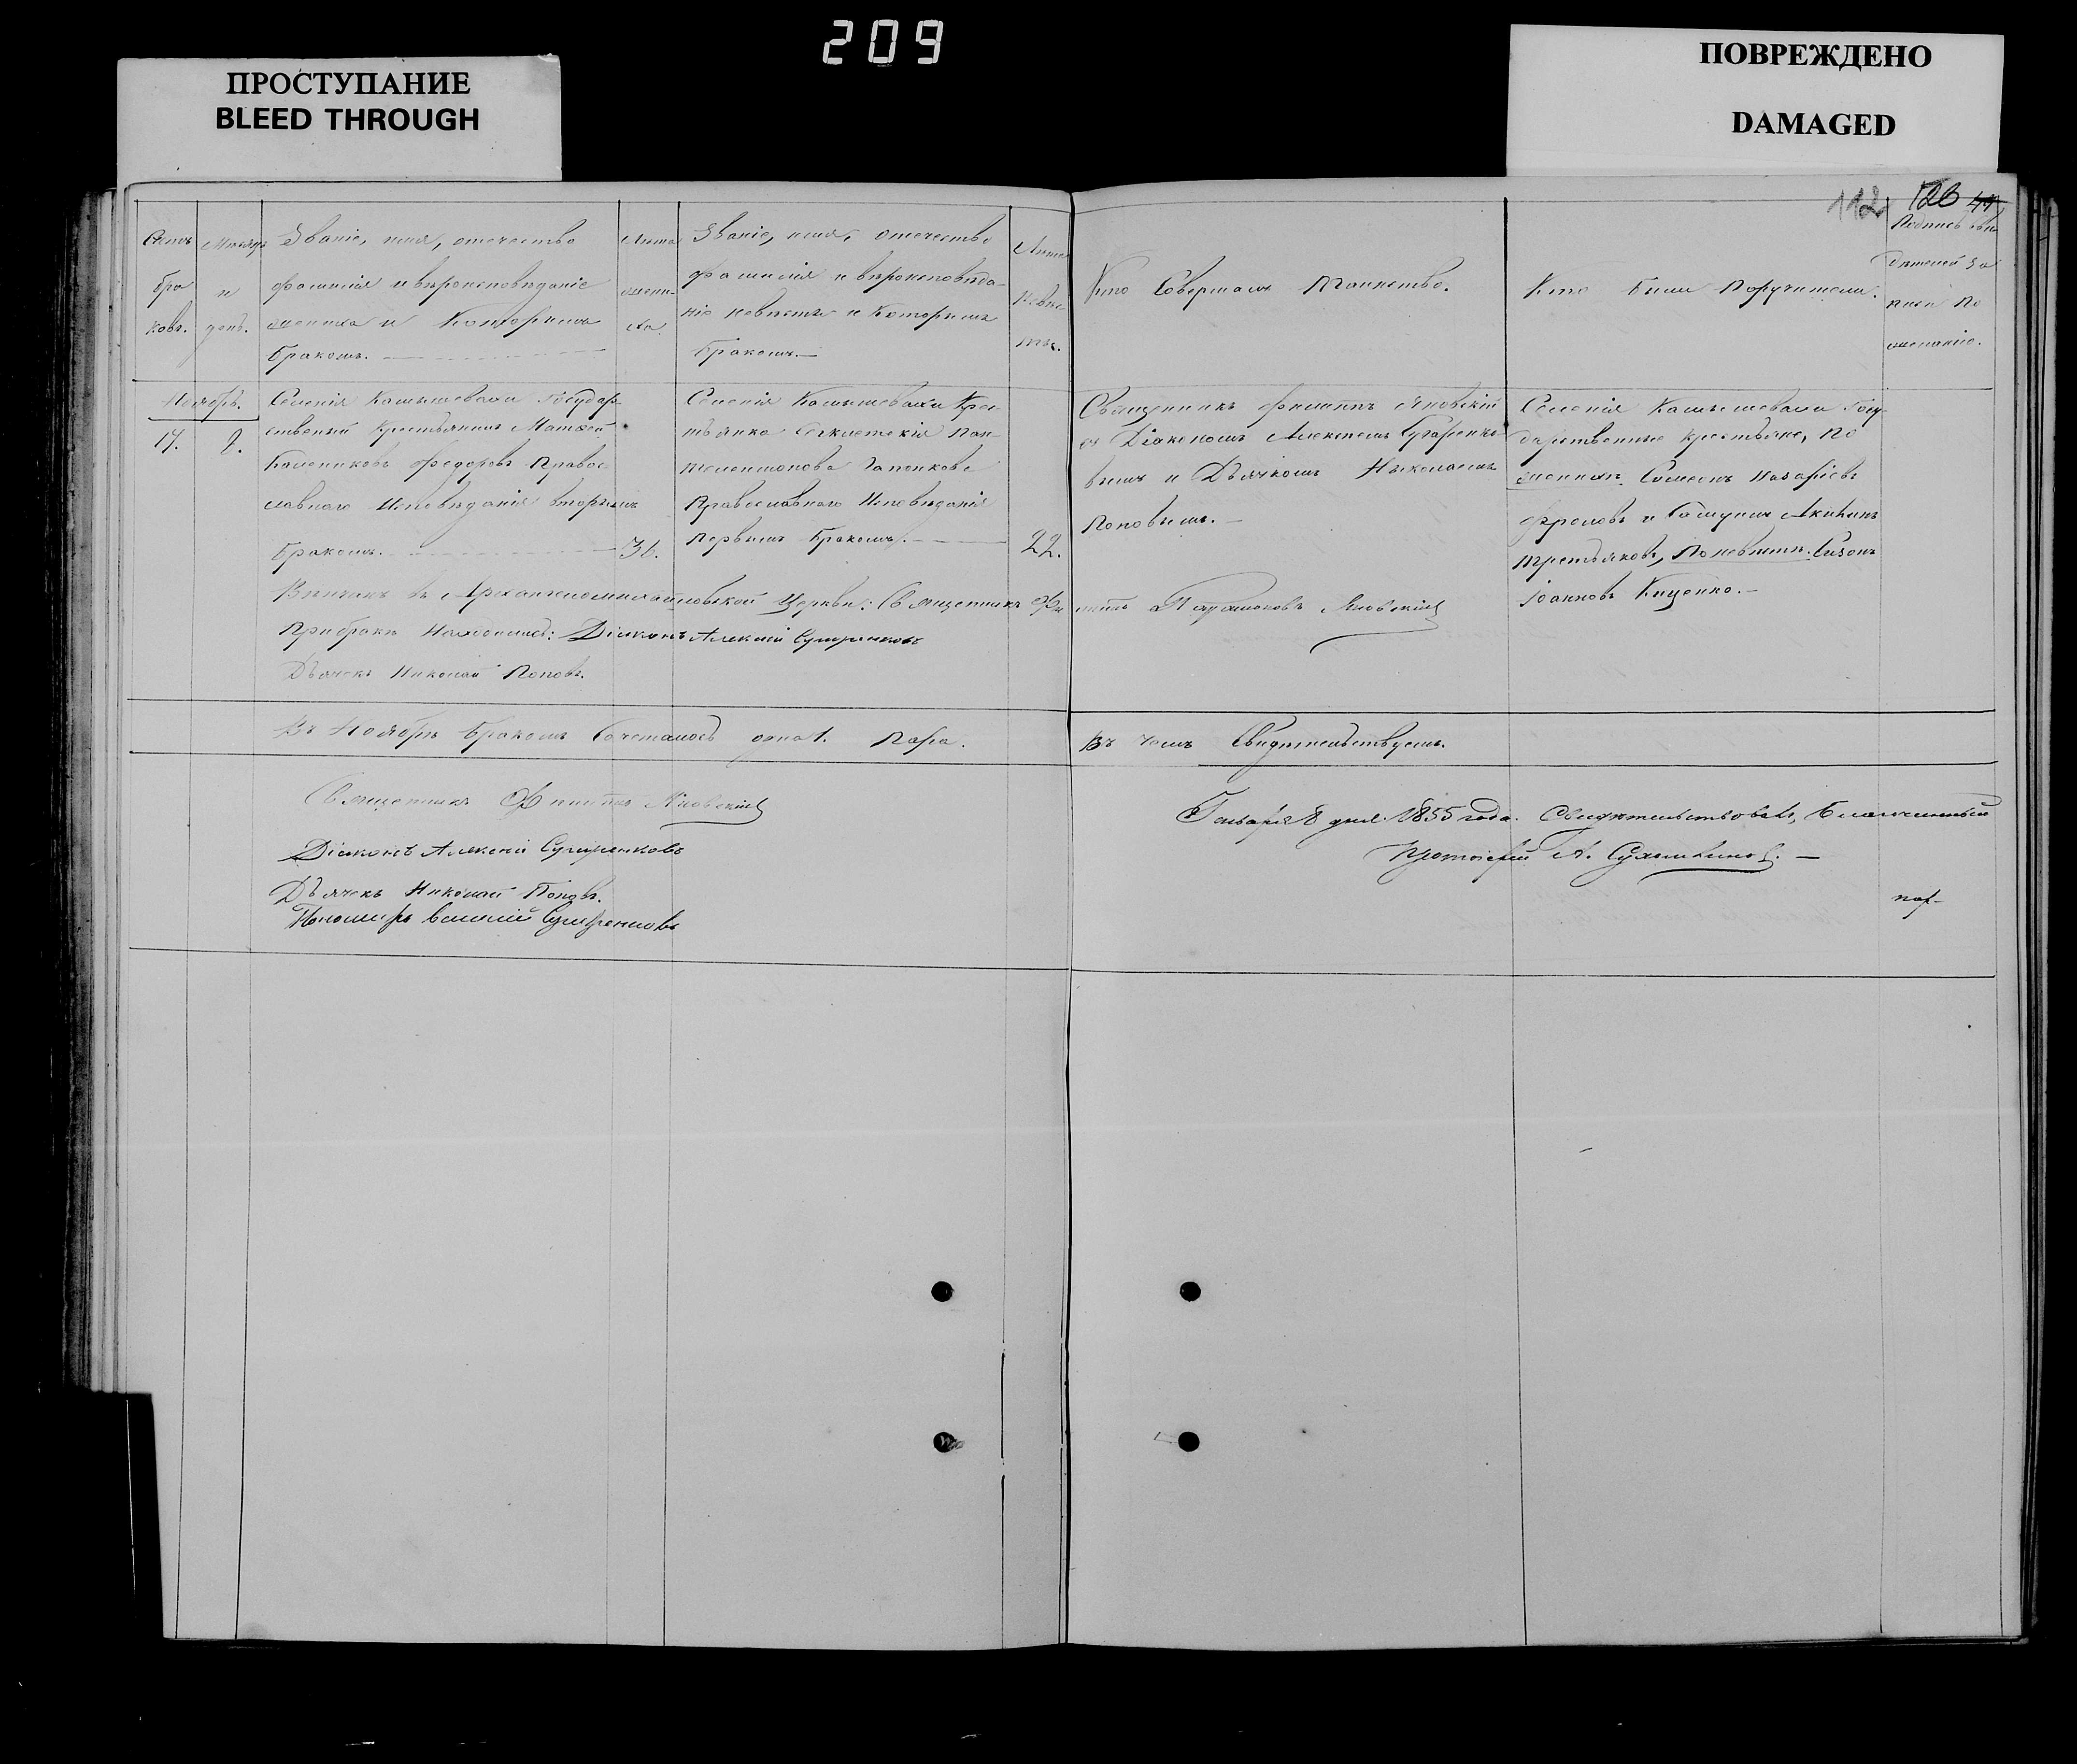 209
ПРОСТУПАНИЕ
BLEED THROUGH
ПОВРЕЖДЕНО
DAMAGED
112 126
Счетъ
бра
ковъ.
Мѣсяцъ
и
день.
Званіе, имя, отечество
фамилія и вѣроисповѣданіе
жениха и которымъ
бракомъ.
Лѣта
жени-
ха.
Званіе, имя, отечество
фамилія и вѣроисповѣда-
ніе невѣсты и которымъ
бракомъ.—
Лѣта
Невѣс
ты.
Кто Совершалъ Таинство.
Кто были Поручители.
Подпись сви
дѣтелей За
писи По
желанію.
Ноябрь.
17. 9.
Селенія Камышевахи Государ-
ственный крестьянинъ Матѳей
Калениковъ Федоровъ Правос-
лавнаго Исповѣданія вторымъ
бракомъ. 36.
Селенія Камышевахи Крес-
тьянка Пан-
телеимонова Гапонкова
Православнаго Исповѣданія
Первымъ бракомъ. 22.
Священникъ Филиппъ Яновскій
съ Діакономъ Алексѣемъ
вымъ и Дьячкомъ Николаемъ
Поповымъ.—
Селенія Камышевахи Госу-
дарственные крестьяне, По
женихѣ, Симеонъ Назаріевъ
Фроловъ и Акикинъ
Третьяковъ, По невѣстѣ. Сизонъ
Іоанновъ Куценко.—
Вѣнчанъ въ Архангеломихайловской Церкви: Священникъ Филиппъ Яновскій
При бракѣ Находились: Діаконъ Алексій
Дьячекъ Николай Поповъ.
Въ Ноябрѣ бракомъ Сочеталось одна 1. Пара. Въ чемъ Свидѣтельствуемъ.
Священникъ Филиппъ Яновскій
Діаконъ Алексій
Дьячекъ Николай Поповъ.
Пономарь Василій
Генваря 8 дня 1855 года. Свидѣтельствовалъ, Благочинный
Протоіерей А.